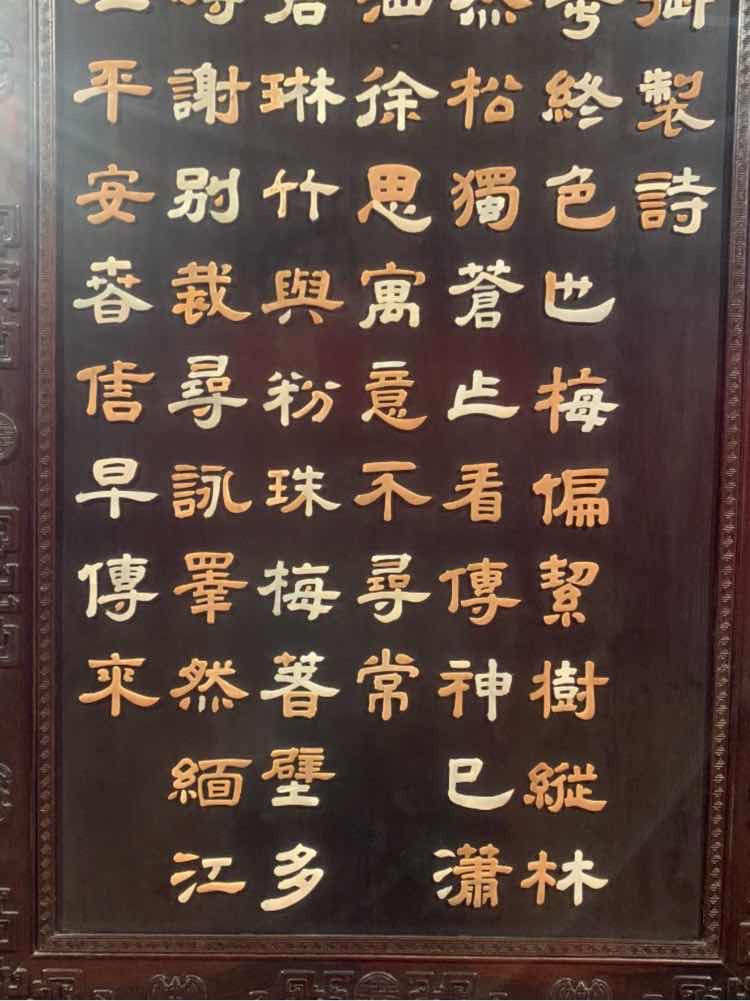 御製詩
終色也梅偏絜樹縱林
然松獨蒼止看傳神已瀟
洒徐思寓意不尋常
君琳竹與粉珠梅著壁多
時謝别裁尋詠罩然緬江
平安春信早傳來